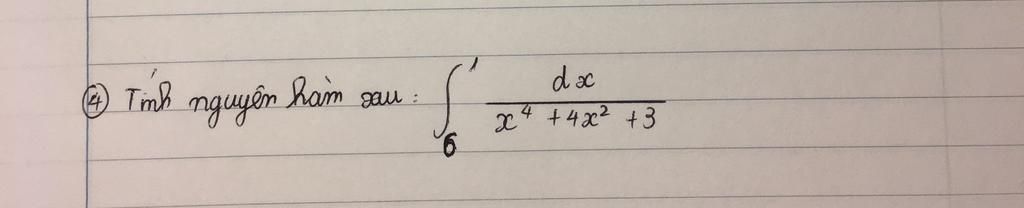 ④ Tính nguyên hàm sau: ∫₆¹ dx / (x⁴ + 4x² + 3)